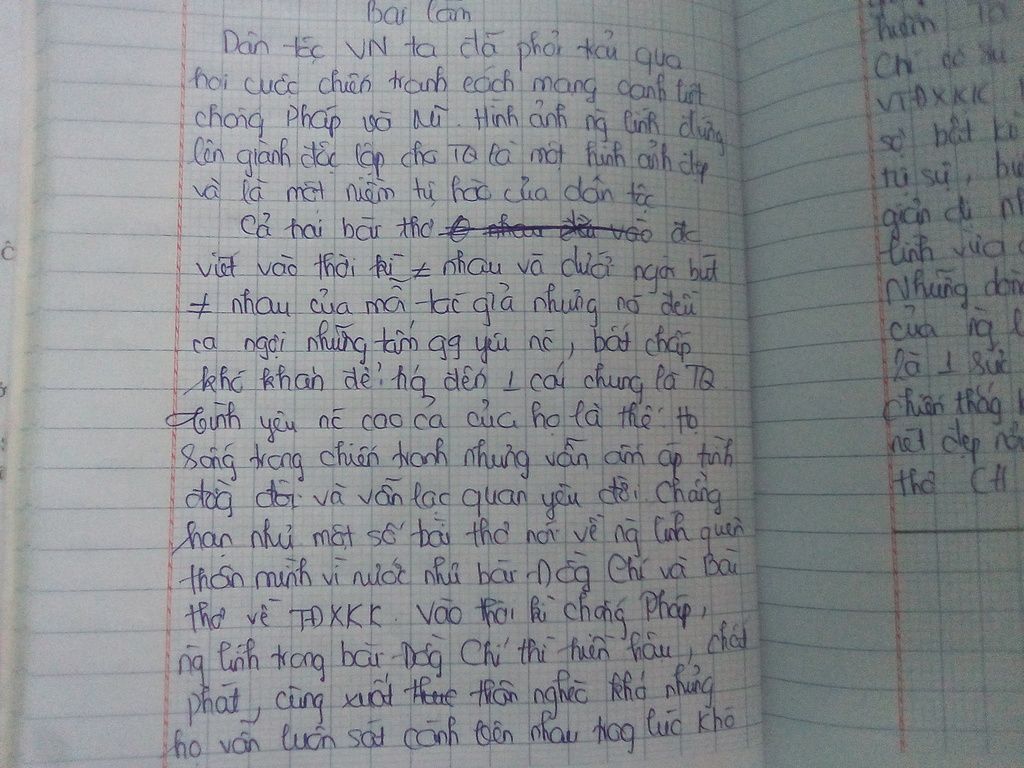 Bài làm
Dân tộc VN ta đã phải trải qua
hai cuộc chiến tranh cách mạng oanh liệt
chống Pháp và Mĩ. Hình ảnh ng lính đứng
lên giành độc lập cho TQ là một hình ảnh đẹp
và là một niềm tự hào của dân tộc
Cả hai bài thơ đc
viết vào thời kì ≠ nhau và dưới ngòi bút
≠ nhau của mỗi tác giả nhưng nó đều
ca ngợi những tấm gg yêu nc, bất chấp
khó khăn để hg đến 1 cái chung là TQ
tình yêu nc cao cả của họ là thế. Họ
sống trong chiến tranh nhưng vẫn ấm áp tình
đồng đội và vẫn lạc quan yêu đời. Chẳng
hạn như một số bài thơ nói về ng lính quên
thân mình vì nước như bài Đồng Chí và Bài
thơ về TĐXKK. Vào thời kì chống Pháp,
ng lính trong bài Đồng Chí thì hiền hậu, chất
phát, cùng xuất thân nghèo khó nhưng
họ vẫn luôn sát cánh bên nhau trog lúc khó
Chí
VTĐXKK
sợ bất kì
tự sự,
giản dị
lính vừa
Những dòng
của ng
là 1 sức
chiến thắng
nét đẹp
thơ CH